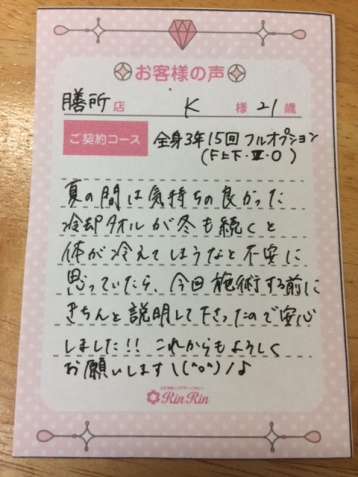 お客様の声
膳所店 K 様 21歳
ご契約コース 全身3年15回 フルオプション
(F上下・V・O)
夏の間は気持ちの良かった
冷却タオルが冬も続くと
体が冷えてしまうなと不安に
思っていたら、今回施術する前に
きちんと説明して下さったので安心
しました!! これからもよろしく
お願いします\(^o^)/♪
RinRin